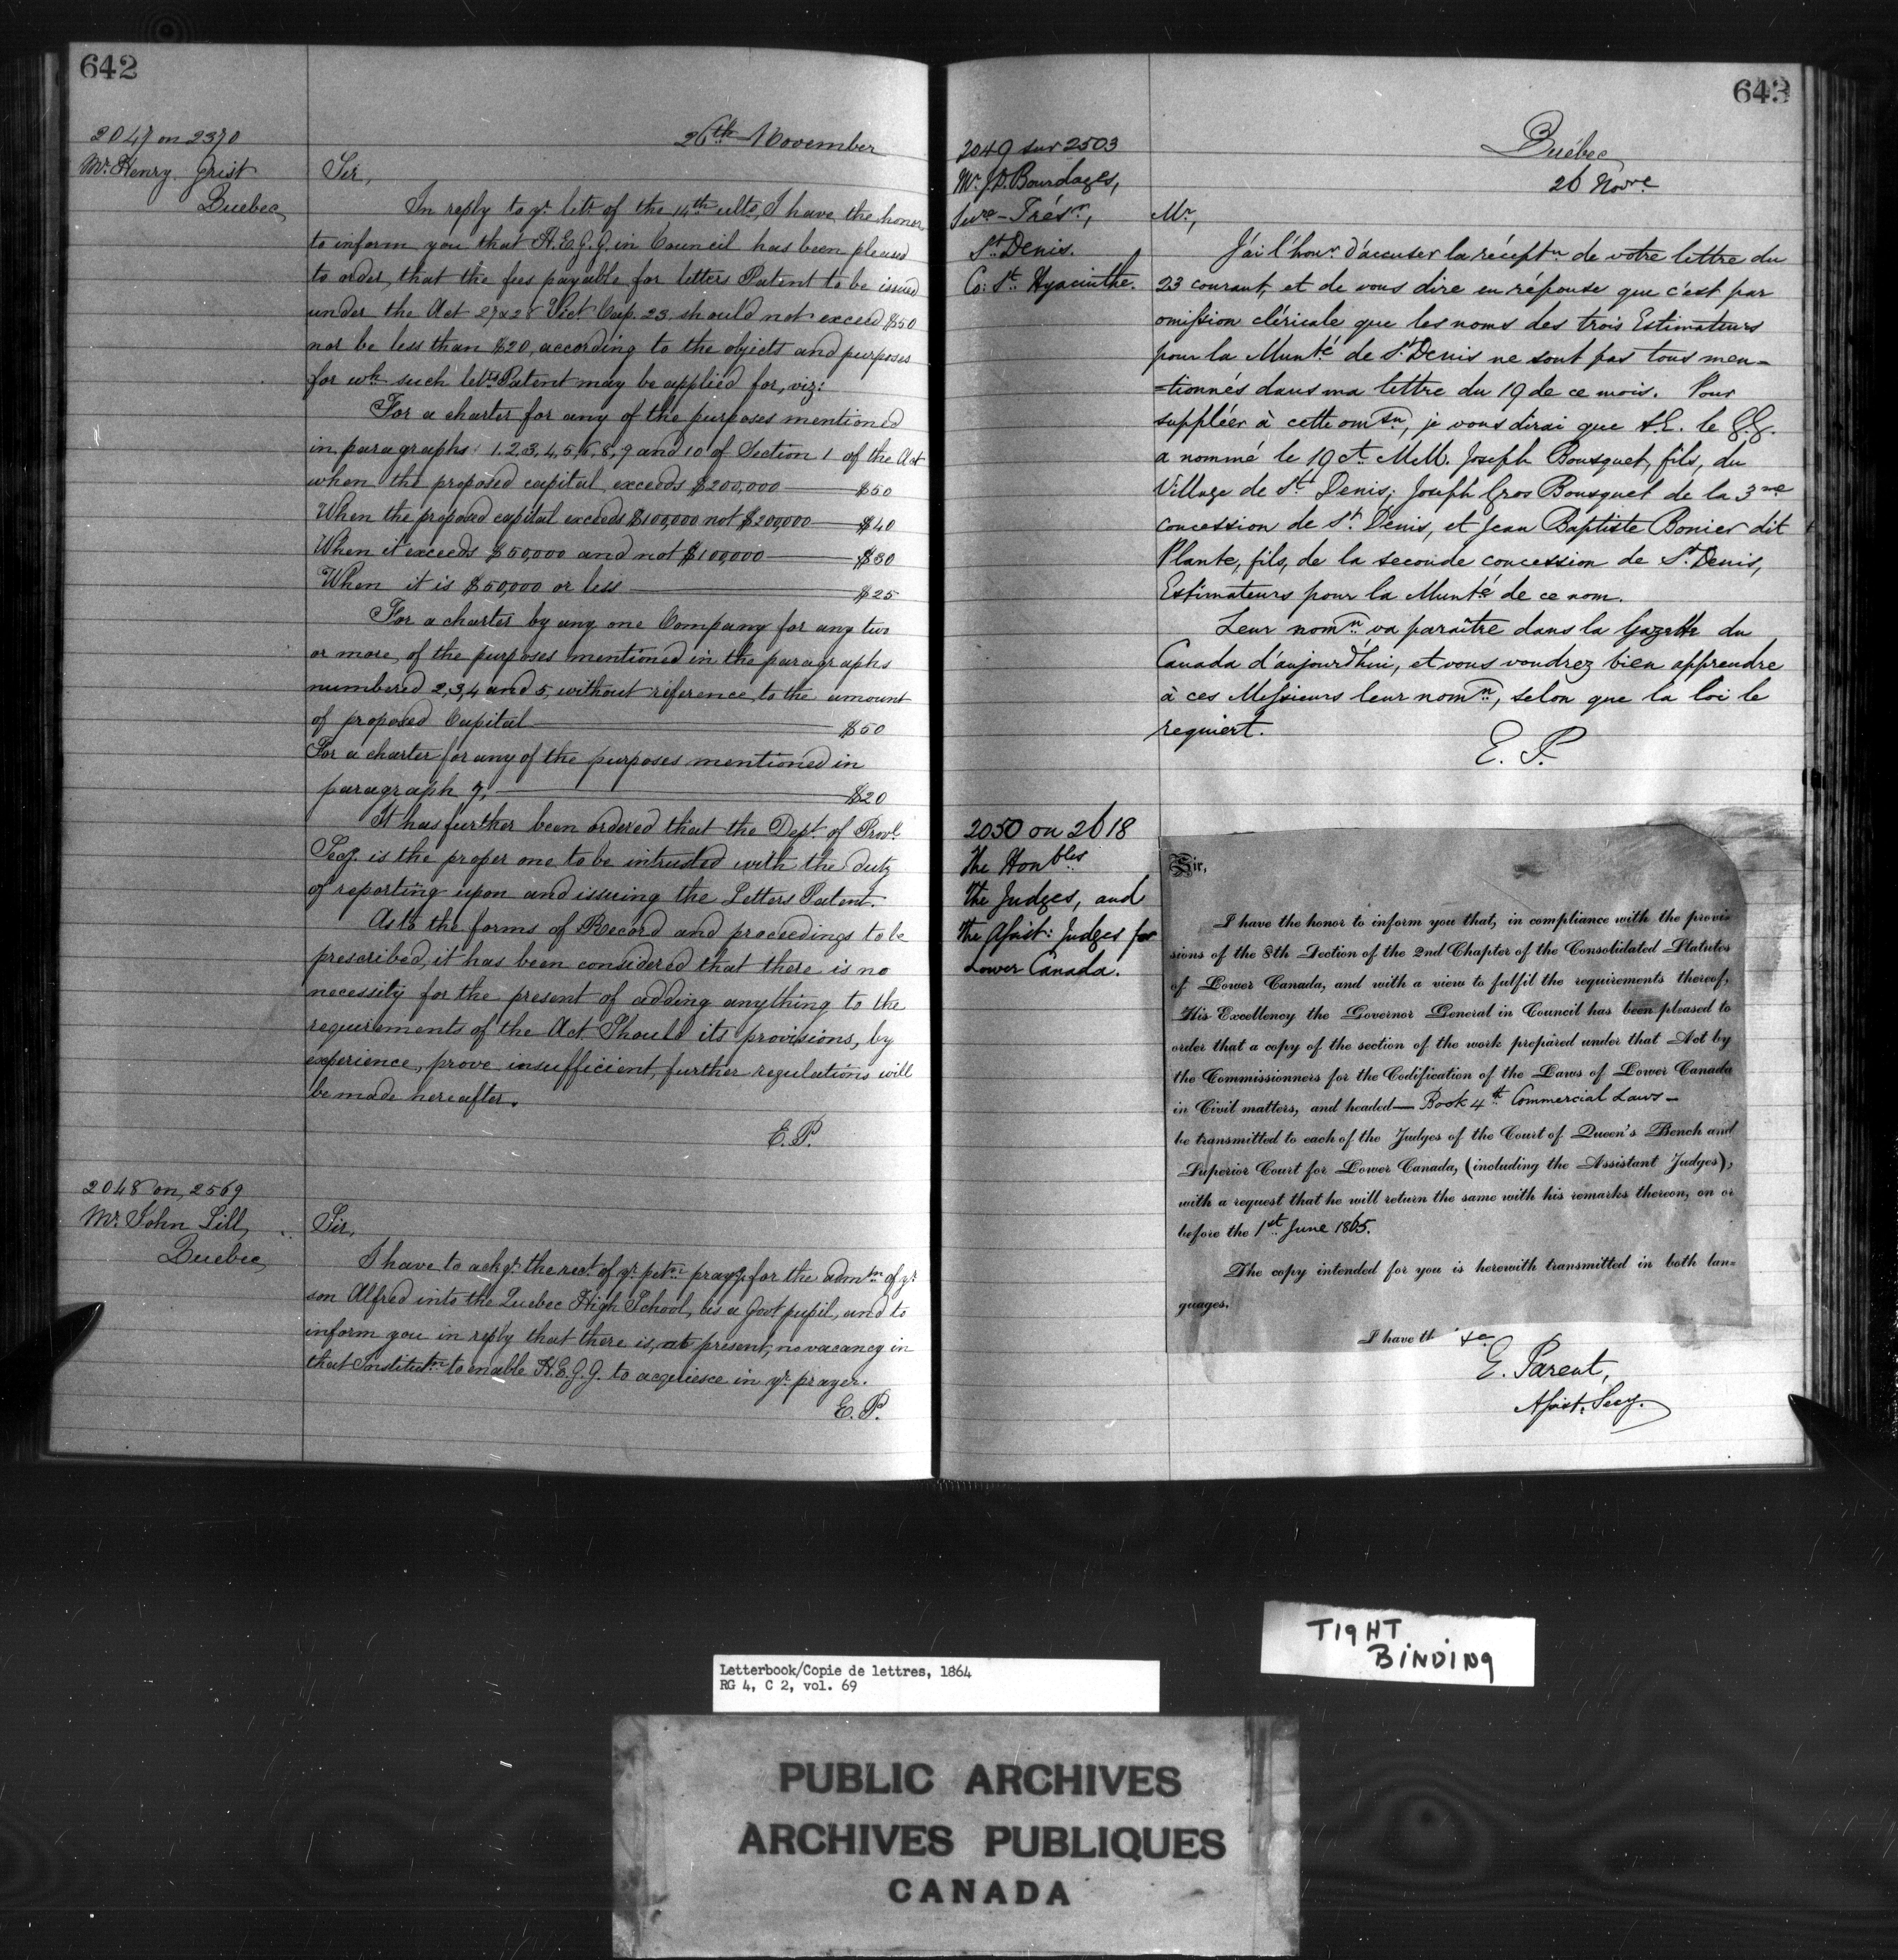 642
26th November
2047 on 2370
Mr. Henry Grist
Quebec
Sir,
In reply to yr. lettr. of the 14th ulto, I have the honor
to inform you that H.E.G.G. in Council has been pleased
to order, that the fees payable for letters Patent to be issued
under the Act 27 & 28 Vict Cap. 23. should not exceed $50
nor be less than $20, according to the objects and purposes
for wh. such lets Patent may be applied for, viz:
For a charter for any of the purposes mentioned
in paragraphs 1,2,3,4,5,6,8,9 and 10 of Section 1 of the Act
when the proposed capital exceeds $200,000 — $50
When the proposed capital exceeds $100,000 not $200,000 — $40
When it exceeds $50,000 and not $100,000 — $30
When it is $50,000 or less — $25
For a charter by any one Company for any two
or more of the purposes mentioned in the paragraphs
numbered 2,3,4 and 5, without reference to the amount
of proposed Capital — $50
For a charter for any of the purposes mentioned in
paragraph 7, — $20
It has further been ordered that the Dept. of Provl.
Secy. is the proper one to be intrusted with the duty
of reporting upon and issuing the Letters Patent.
As to the forms of Record and proceedings to be
prescribed, it has been considered that there is no
necessity for the present of adding anything to the
requirements of the Act Should its provisions, by
experience, prove insufficient, further regulations will
be made hereafter.
E.P.
2048 on, 2569
Mr. John Lill,
Quebec
Sir,
I have to ackg. the rect. of yr. petn. prayg for the admtn. of yr.
son Alfred into the Quebec High School, as a govt pupil, and to
inform you in reply that there is, at present, no vacancy in
that Institutn. to enable H.E.G.G. to acquiesce in yr. prayer.
E.P.
643
Québec
26 Novre
2049 sur 2503
Mr. J.D. Bourdages,
Secre-Trésr.,
St. Denis.
Co: St. Hyacinthe.
Mr,
J'ai l'honr. d'accuser la réceptn. de votre lettre du
23 courant, et de vous dire en réponse que c'est par
omission cléricale que les noms des trois Estimateurs
pour la Munté de St. Denis ne sont pas tous men=
=tionnés dans ma lettre du 19 de ce mois. Pour
suppléer à cette omsn., je vous dirai que S.E. le G.G.
a nommé le 19 ct. MM. Joseph Bousquet, fils, du
Village de St. Denis; Joseph Gros Bousquet de la 3me
concession de St. Denis, et Jean Baptiste Bonier dit
Plante, fils, de la seconde concession de St. Denis,
Estimateurs pour la Munté de ce nom.
Leur nomn. va paraître dans la Gazette du
Canada d'aujourd'hui, et vous voudrez bien apprendre
à ces Messieurs leur nomn., selon que la loi le
requiert.
E. P.
2050 on 2618
The Honbles
The Judges, and
The Assist: Judges for
Lower Canada.
Sir,
I have the honor to inform you that, in compliance with the provi-
sions of the 8th Section of the 2nd Chapter of the Consolidated Statutes
of Lower Canada, and with a view to fulfil the requirements thereof,
His Excellency the Governor General in Council has been pleased to
order that a copy of the section of the work prepared under that Act by
the Commissionners for the Codification of the Laws of Lower Canada
in Civil matters, and headed— Book 4th. Commercial Laws —
be transmitted to each of the Judges of the Court of Queen's Bench and
Superior Court for Lower Canada, (including the Assistant Judges),
with a request that he will return the same with his remarks thereon, on or
before the 1st. June 1865.
The copy intended for you is herewith transmitted in both lan-
guages.
I have th &c
E. Parent,
Assist. Secy.
TIGHT
BINDING
Letterbook/Copie de lettres, 1864
RG 4, C 2, vol. 69
PUBLIC ARCHIVES
ARCHIVES PUBLIQUES
CANADA